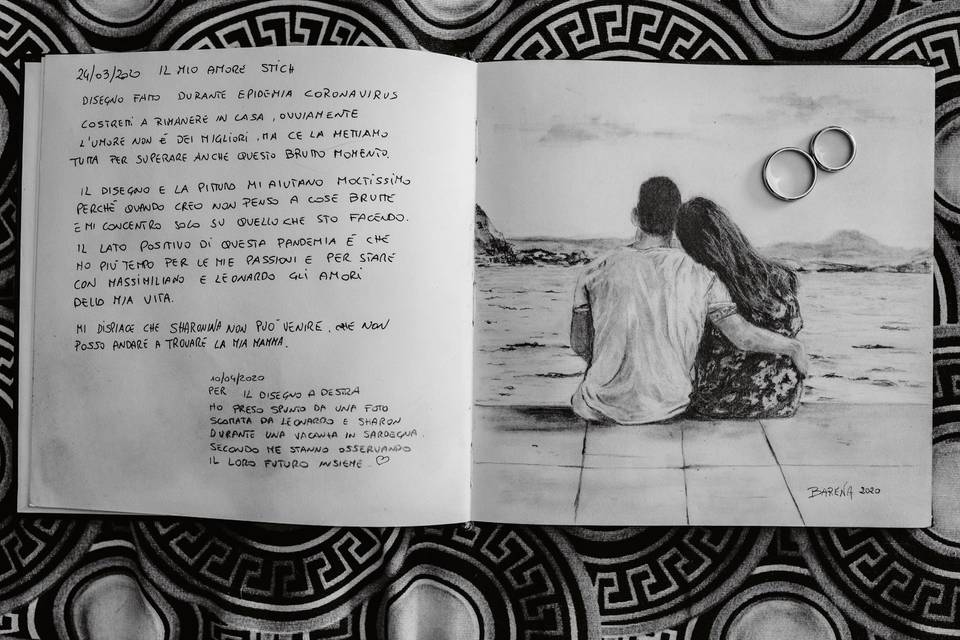 24/03/2020 IL MIO AMORE STICH
DISEGNO FATTO DURANTE EPIDEMIA CORONAVIRUS
COSTRETTI A RIMANERE IN CASA, OVVIAMENTE
L'UMORE NON È DEI MIGLIORI, MA CE LA METTIAMO
TUTTA PER SUPERARE ANCHE QUESTO BRUTTO MOMENTO.
IL DISEGNO E LA PITTURA MI AIUTANO MOLTISSIMO
PERCHÈ QUANDO CREO NON PENSO A COSE BRUTTE
E MI CONCENTRO SOLO SU QUELLO CHE STO FACENDO.
IL LATO POSITIVO DI QUESTA PANDEMIA È CHE
HO PIÙ TEMPO PER LE MIE PASSIONI E PER STARE
CON MASSIMILIANO E LEONARDO GLI AMORI
DELLA MIA VITA.
MI DISPIACE CHE SHARONINA NON PUÒ VENIRE, CHE NON
POSSO ANDARE A TROVARE LA MIA MAMMA.
10/04/2020
PER IL DISEGNO A DESTRA
HO PRESO SPUNTO DA UNA FOTO
SCATTATA DA LEONARDO E SHARON
DURANTE UNA VACANZA IN SARDEGNA.
SECONDO ME STANNO OSSERVANDO
IL LORO FUTURO INSIEME ♡
2020